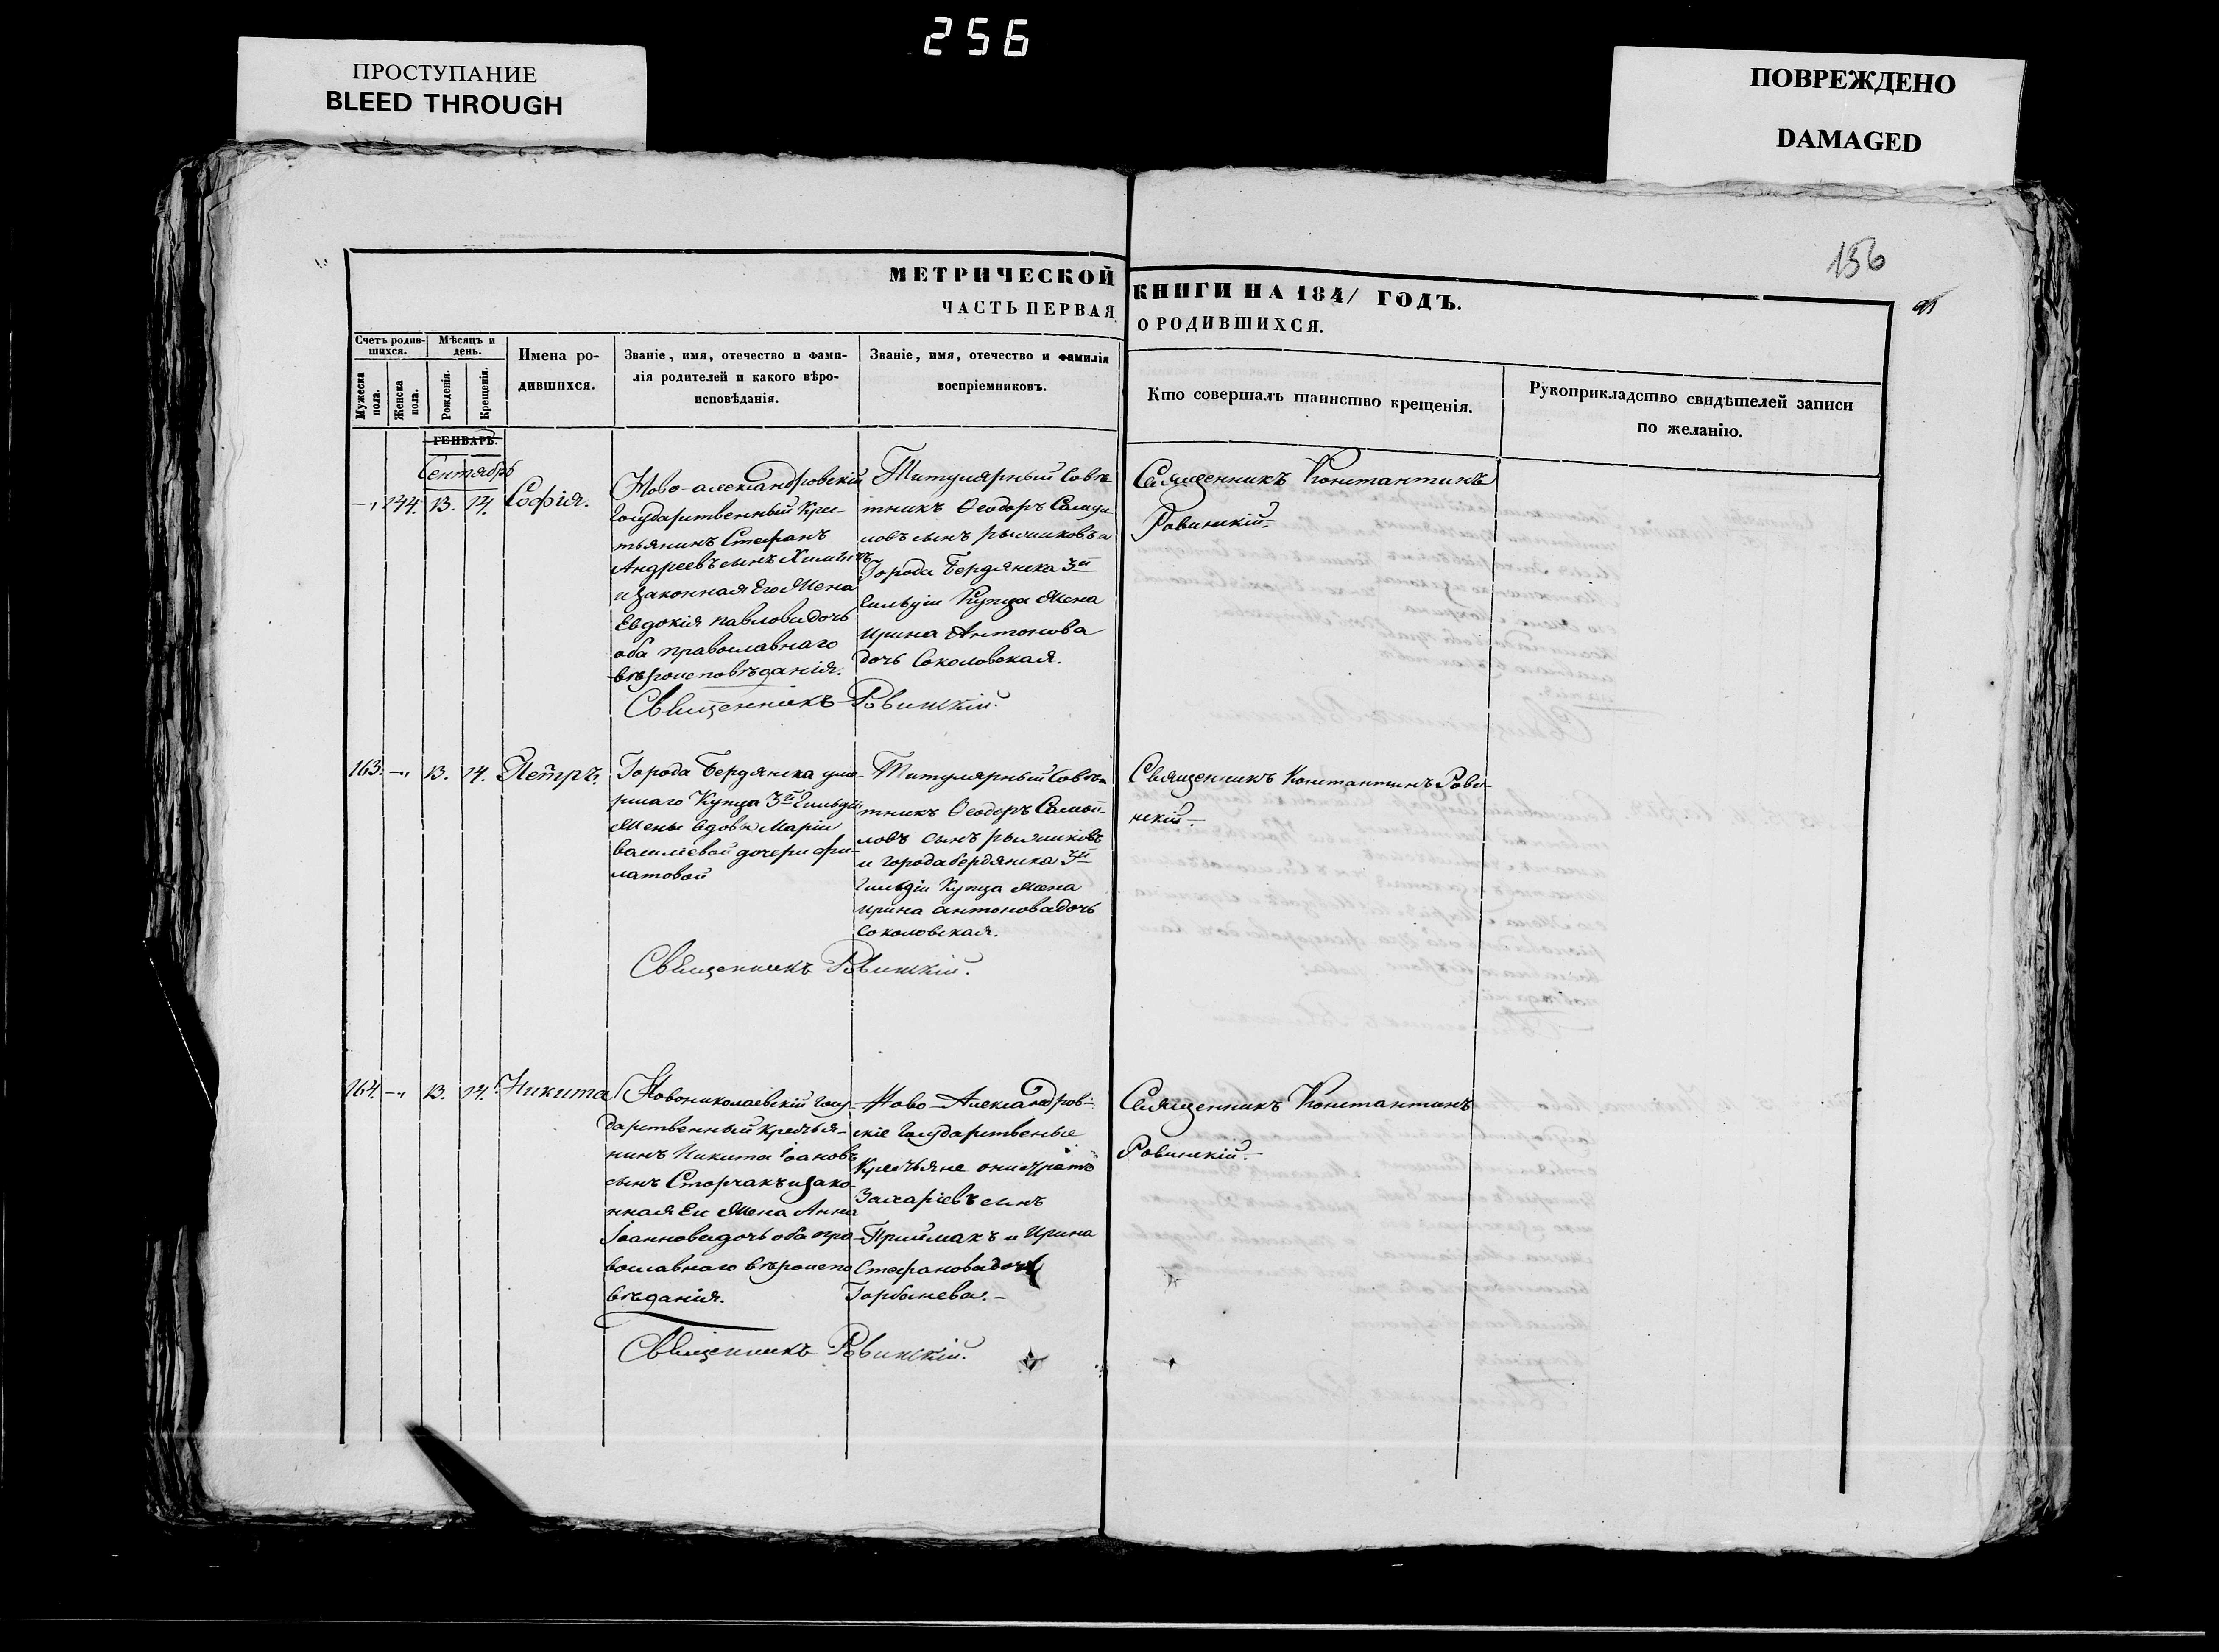 256
ПРОСТУПАНИЕ
BLEED THROUGH
ПОВРЕЖДЕНО
DAMAGED
156
МЕТРИЧЕСКОЙ КНИГИ НА 1841 ГОДЪ.
ЧАСТЬ ПЕРВАЯ О РОДИВШИХСЯ.
Счетъ родив-
шихся.
Мужеска пола.
Женска пола.
Мѣсяцъ и
день.
Рожденія.
Крещенія.
Имена ро-
дившихся.
Званіе, имя, отечество и фами-
лія родителей и какого вѣро-
исповѣданія.
Званіе, имя, отечество и фамилія
воспріемниковъ.
Кто совершалъ таинство крещенія.
Рукоприкладство свидѣтелей записи
по желанію.
ГЕНВАРЬ.
Сентябрь
144. 13. 14. Софія.
Ново-александровскій
государственный Кре-
тьянинъ Стефанъ
Андреевъ сынъ
и законная Его Жена
Евдокія павлова дочь
оба православнаго
вѣроисповѣданія.
Титулярный Совѣ-
тникъ Ѳеодоръ Самуи-
ловъ сынъ рычиковъ и
Города Бердянска 3й
гильдіи Купца Жена
Ирина Антонова
дочь Соколовская.
Священникъ Константинъ
Ровинскій.
Священникъ Ровинскій.
163. 13. 14. Петръ.
Города Бердянска уме-
ршаго Купца 3й Гильдіи
Жены вдовы Маріи
василіевой дочери фи-
латовой
Титулярный Совѣ-
тникъ Ѳеодоръ Самой-
ловъ сынъ рычиковъ
и города бердянска 3й
Гильдіи Купца Жена
ирина антонова дочь
Соколовская.
Священникъ Константинъ Рови-
нскій.
Священникъ Ровинскій.
164. 13. 14. Никита
Новониколаевскій госу-
дарственный крестья-
нинъ Никита Іоановъ
сынъ Сторчакъ и зако-
нная Ег Жена Анна
Іоаннова дочь оба пра-
вославнаго вѣроиспо
вѣданія.
Ново-Александров-
скіе Государственые
Крестьяне
Захаріевъ сынъ
Приймакъ и Ирина
Стефанова дочь
Горбанева.
Священникъ Константинъ
Ровинскій.
Священникъ Ровинскій.